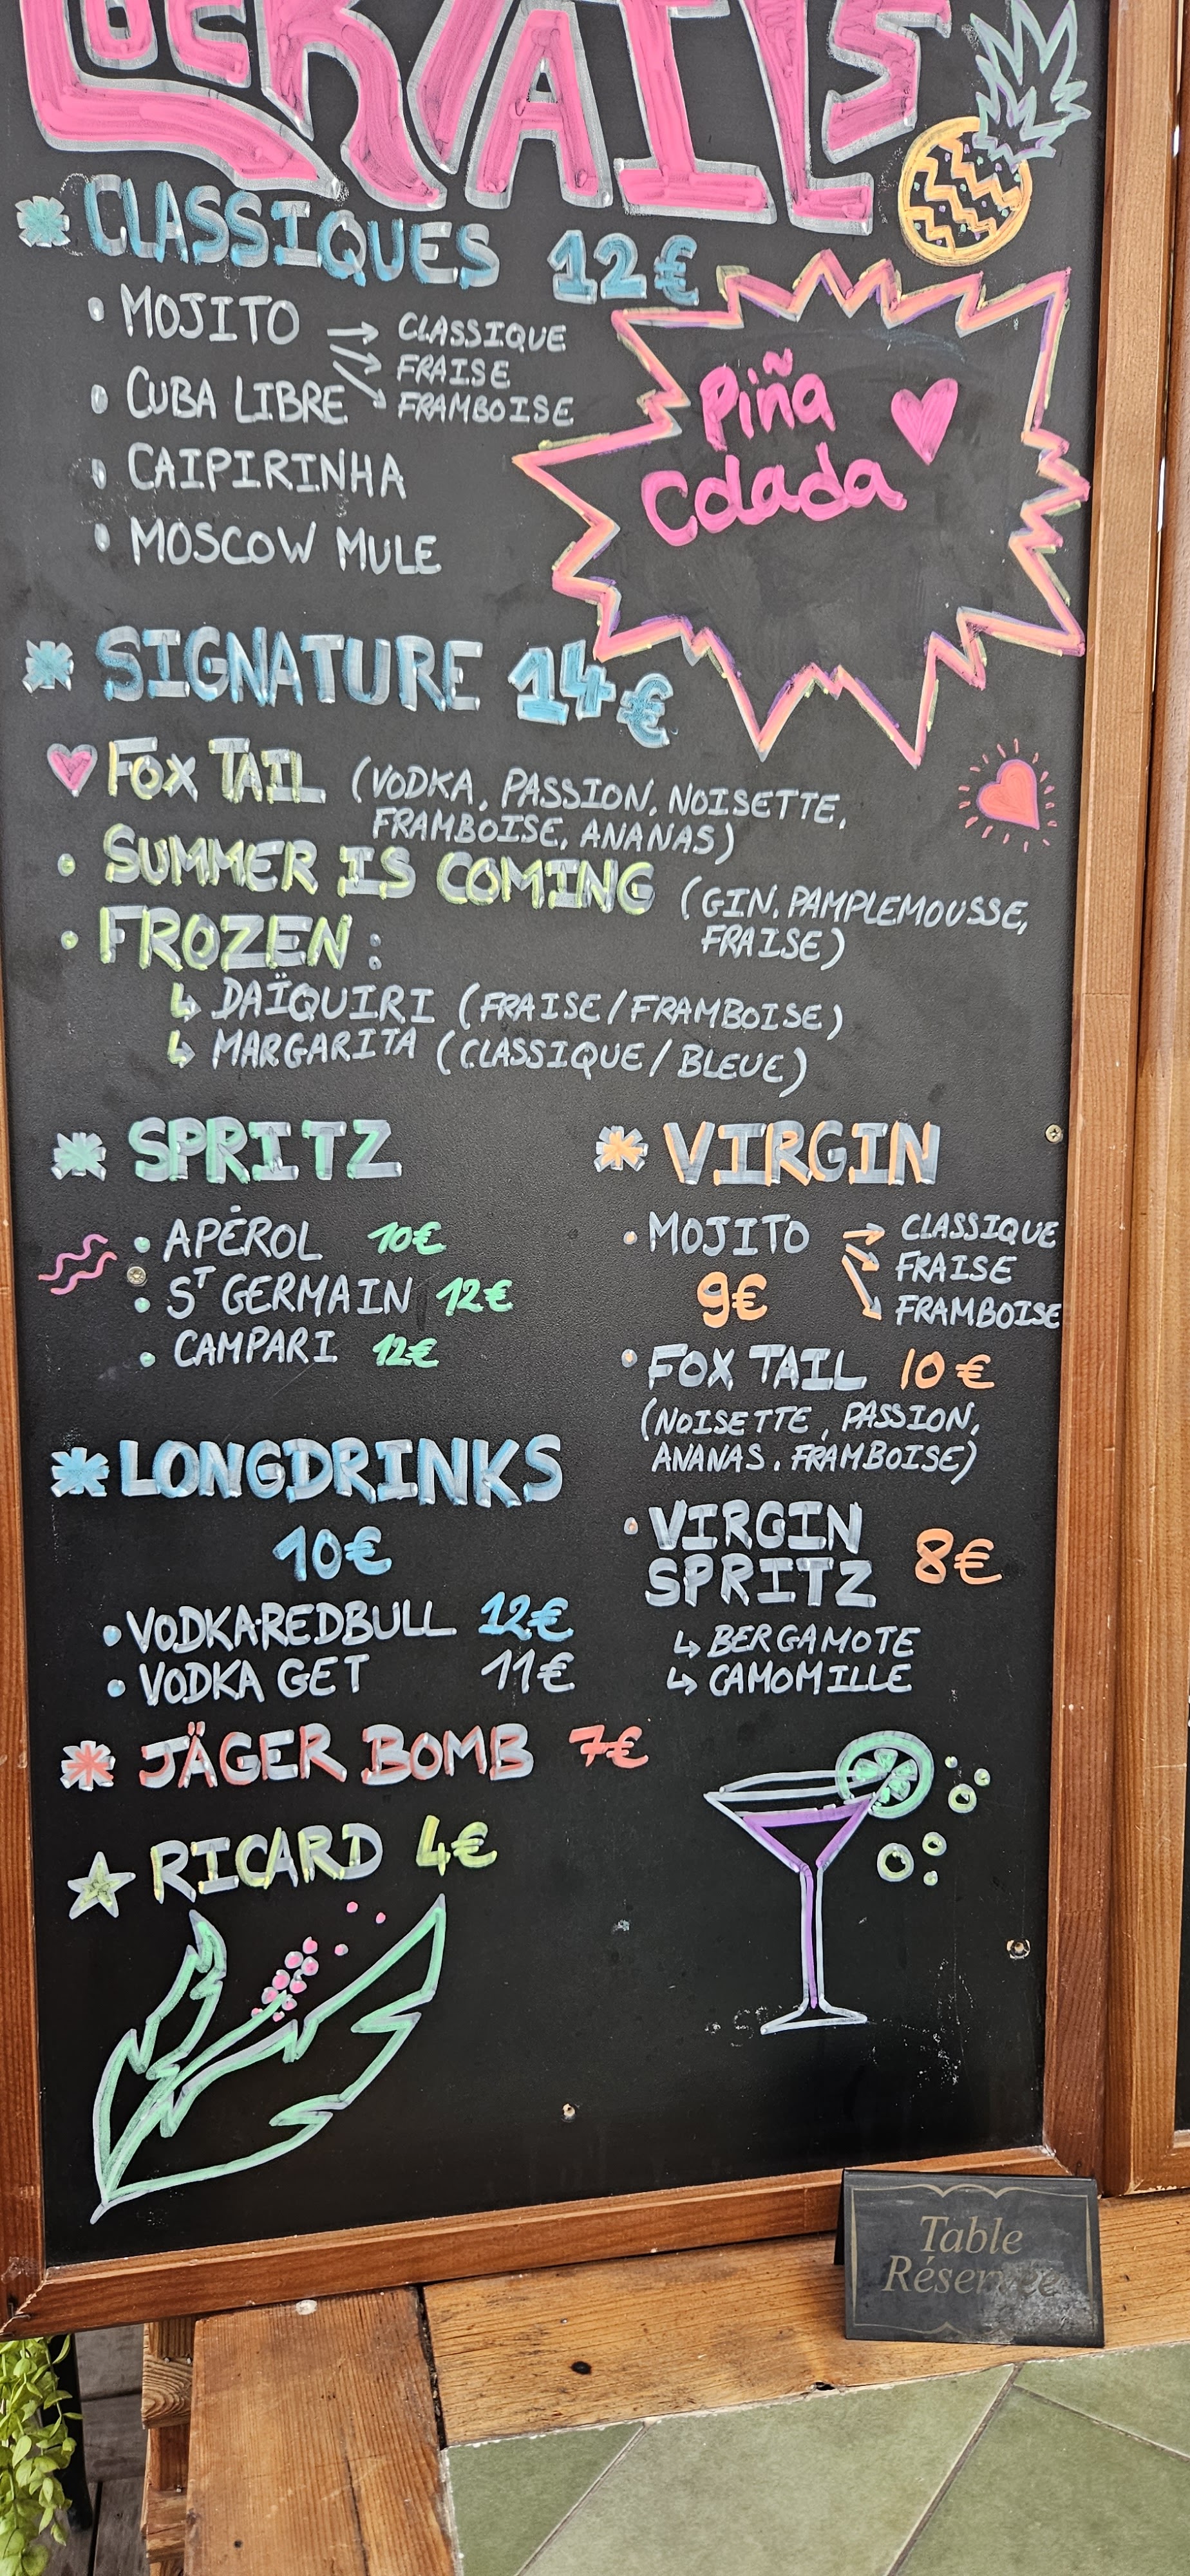 COCKTAILS
CLASSIQUES 12€
• MOJITO → CLASSIQUE
→ FRAISE
→ FRAMBOISE
• CUBA LIBRE
• CAIPIRINHA
• MOSCOW MULE
Piña
Colada
SIGNATURE 14€
FOX TAIL (VODKA, PASSION, NOISETTE,
FRAMBOISE, ANANAS)
• SUMMER IS COMING (GIN, PAMPLEMOUSSE,
FRAISE)
• FROZEN :
↳ DAÏQUIRI (FRAISE/FRAMBOISE)
↳ MARGARITA (CLASSIQUE/BLEUE)
SPRITZ
• APÉROL 10€
• ST GERMAIN 12€
• CAMPARI 12€
LONGDRINKS
10€
• VODKA-REDBULL 12€
• VODKA GET 11€
JÄGER BOMB 7€
RICARD 4€
VIRGIN
• MOJITO → CLASSIQUE
→ FRAISE
→ FRAMBOISE
9€
• FOX TAIL 10€
(NOISETTE, PASSION,
ANANAS, FRAMBOISE)
• VIRGIN
SPRITZ 8€
↳ BERGAMOTE
↳ CAMOMILLE
Table
Réservée